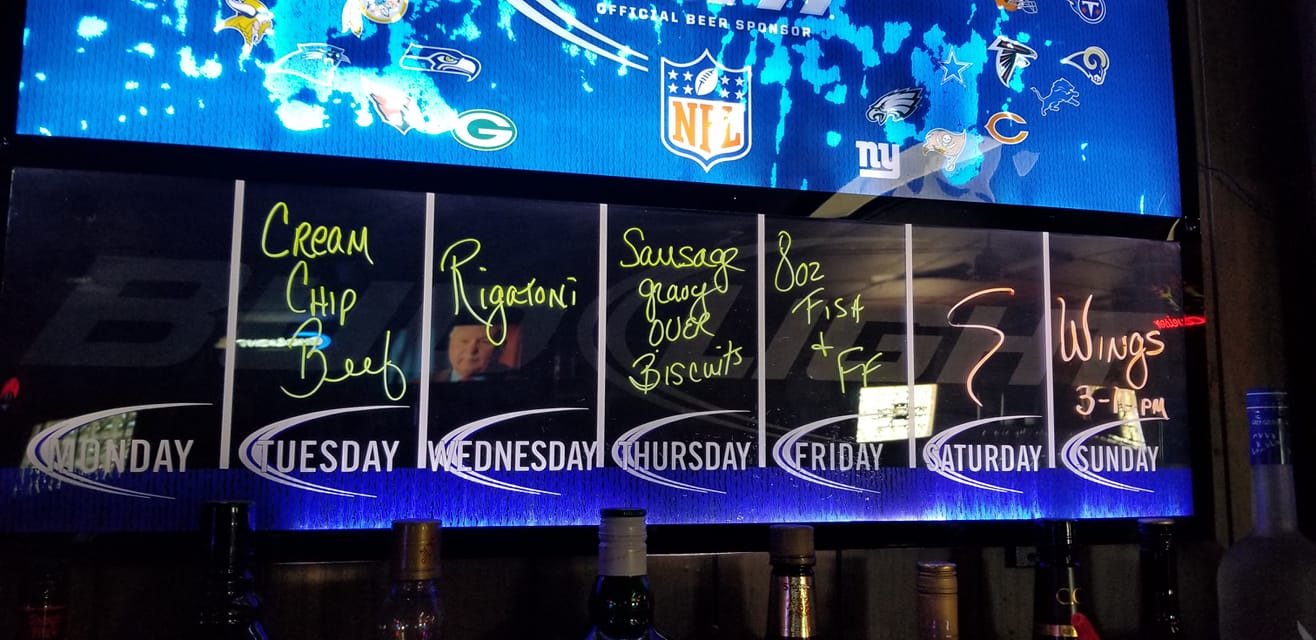 OFFICIAL BEER SPONSOR
NFL
G
ny
C
BUD LIGHT
CREAM
CHIP
Beef
RigatoNi
Sausage
gravy
over
Biscuits
8oz
FISH
+ FF
WINGS
3-11 PM
MONDAY
TUESDAY
WEDNESDAY
THURSDAY
FRIDAY
SATURDAY
SUNDAY